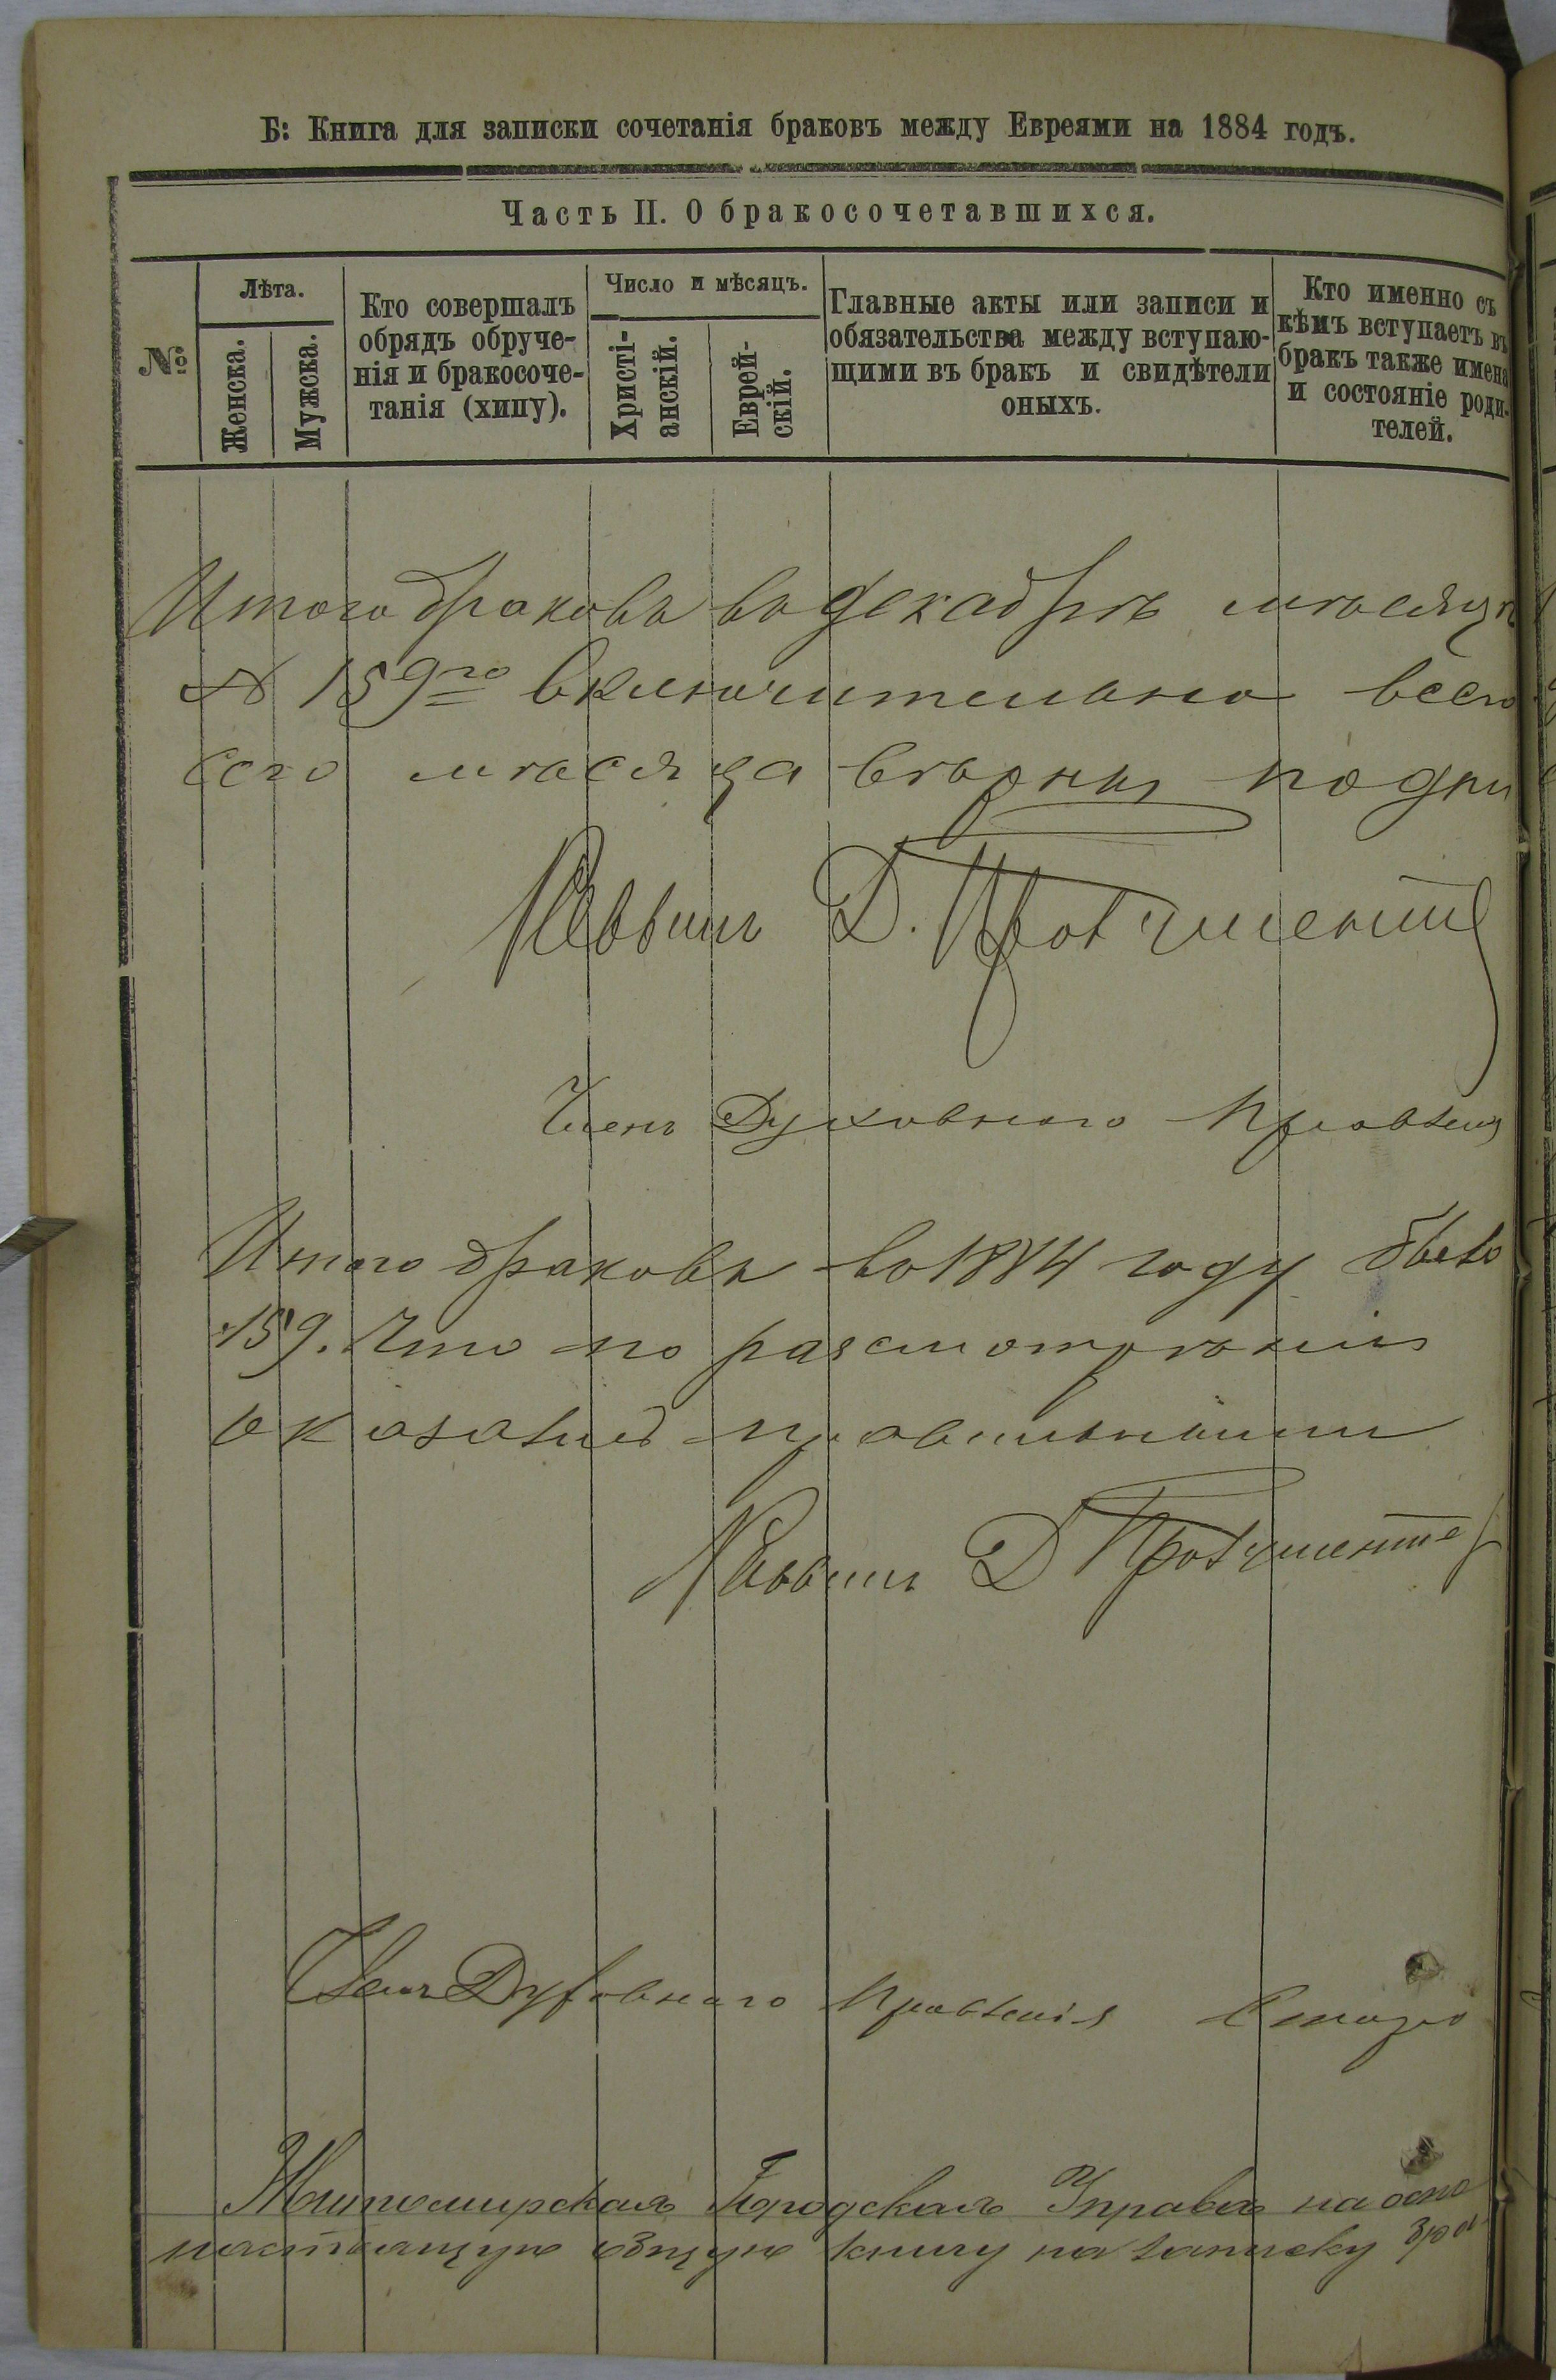 Б: Книга для записки сочетанія браковъ между Евреями на 1884 годъ.
Часть II. О бракосочетавшихся.
№
Лѣта.
Женска.
Мужска.
Кто совершалъ
обрядъ обруче-
нія и бракосоче-
танія (хипу).
Число и мѣсяцъ.
Христі-
анскій.
Еврей-
скій.
Главные акты или записи и
обязательства между вступаю-
щими въ бракъ и свидѣтели
оныхъ.
Кто именно съ
кѣмъ вступаетъ въ
бракъ также имена
и состояніе роди-
телей.
Итого браковъ въ декабрѣ мѣсяцѣ
№ 159го включительно всего
сего мѣсяца вѣрны подпи
Раввинъ Д.
Членъ Духовнаго Правленія
Итого браковъ въ 1884 году было
159. Что по разсмотрѣнію
оказалось правильными
Раввинъ Д
Членъ Духовнаго Правленія
Житомирская Городская Управа на осно
настоящую общую книгу на записку бра